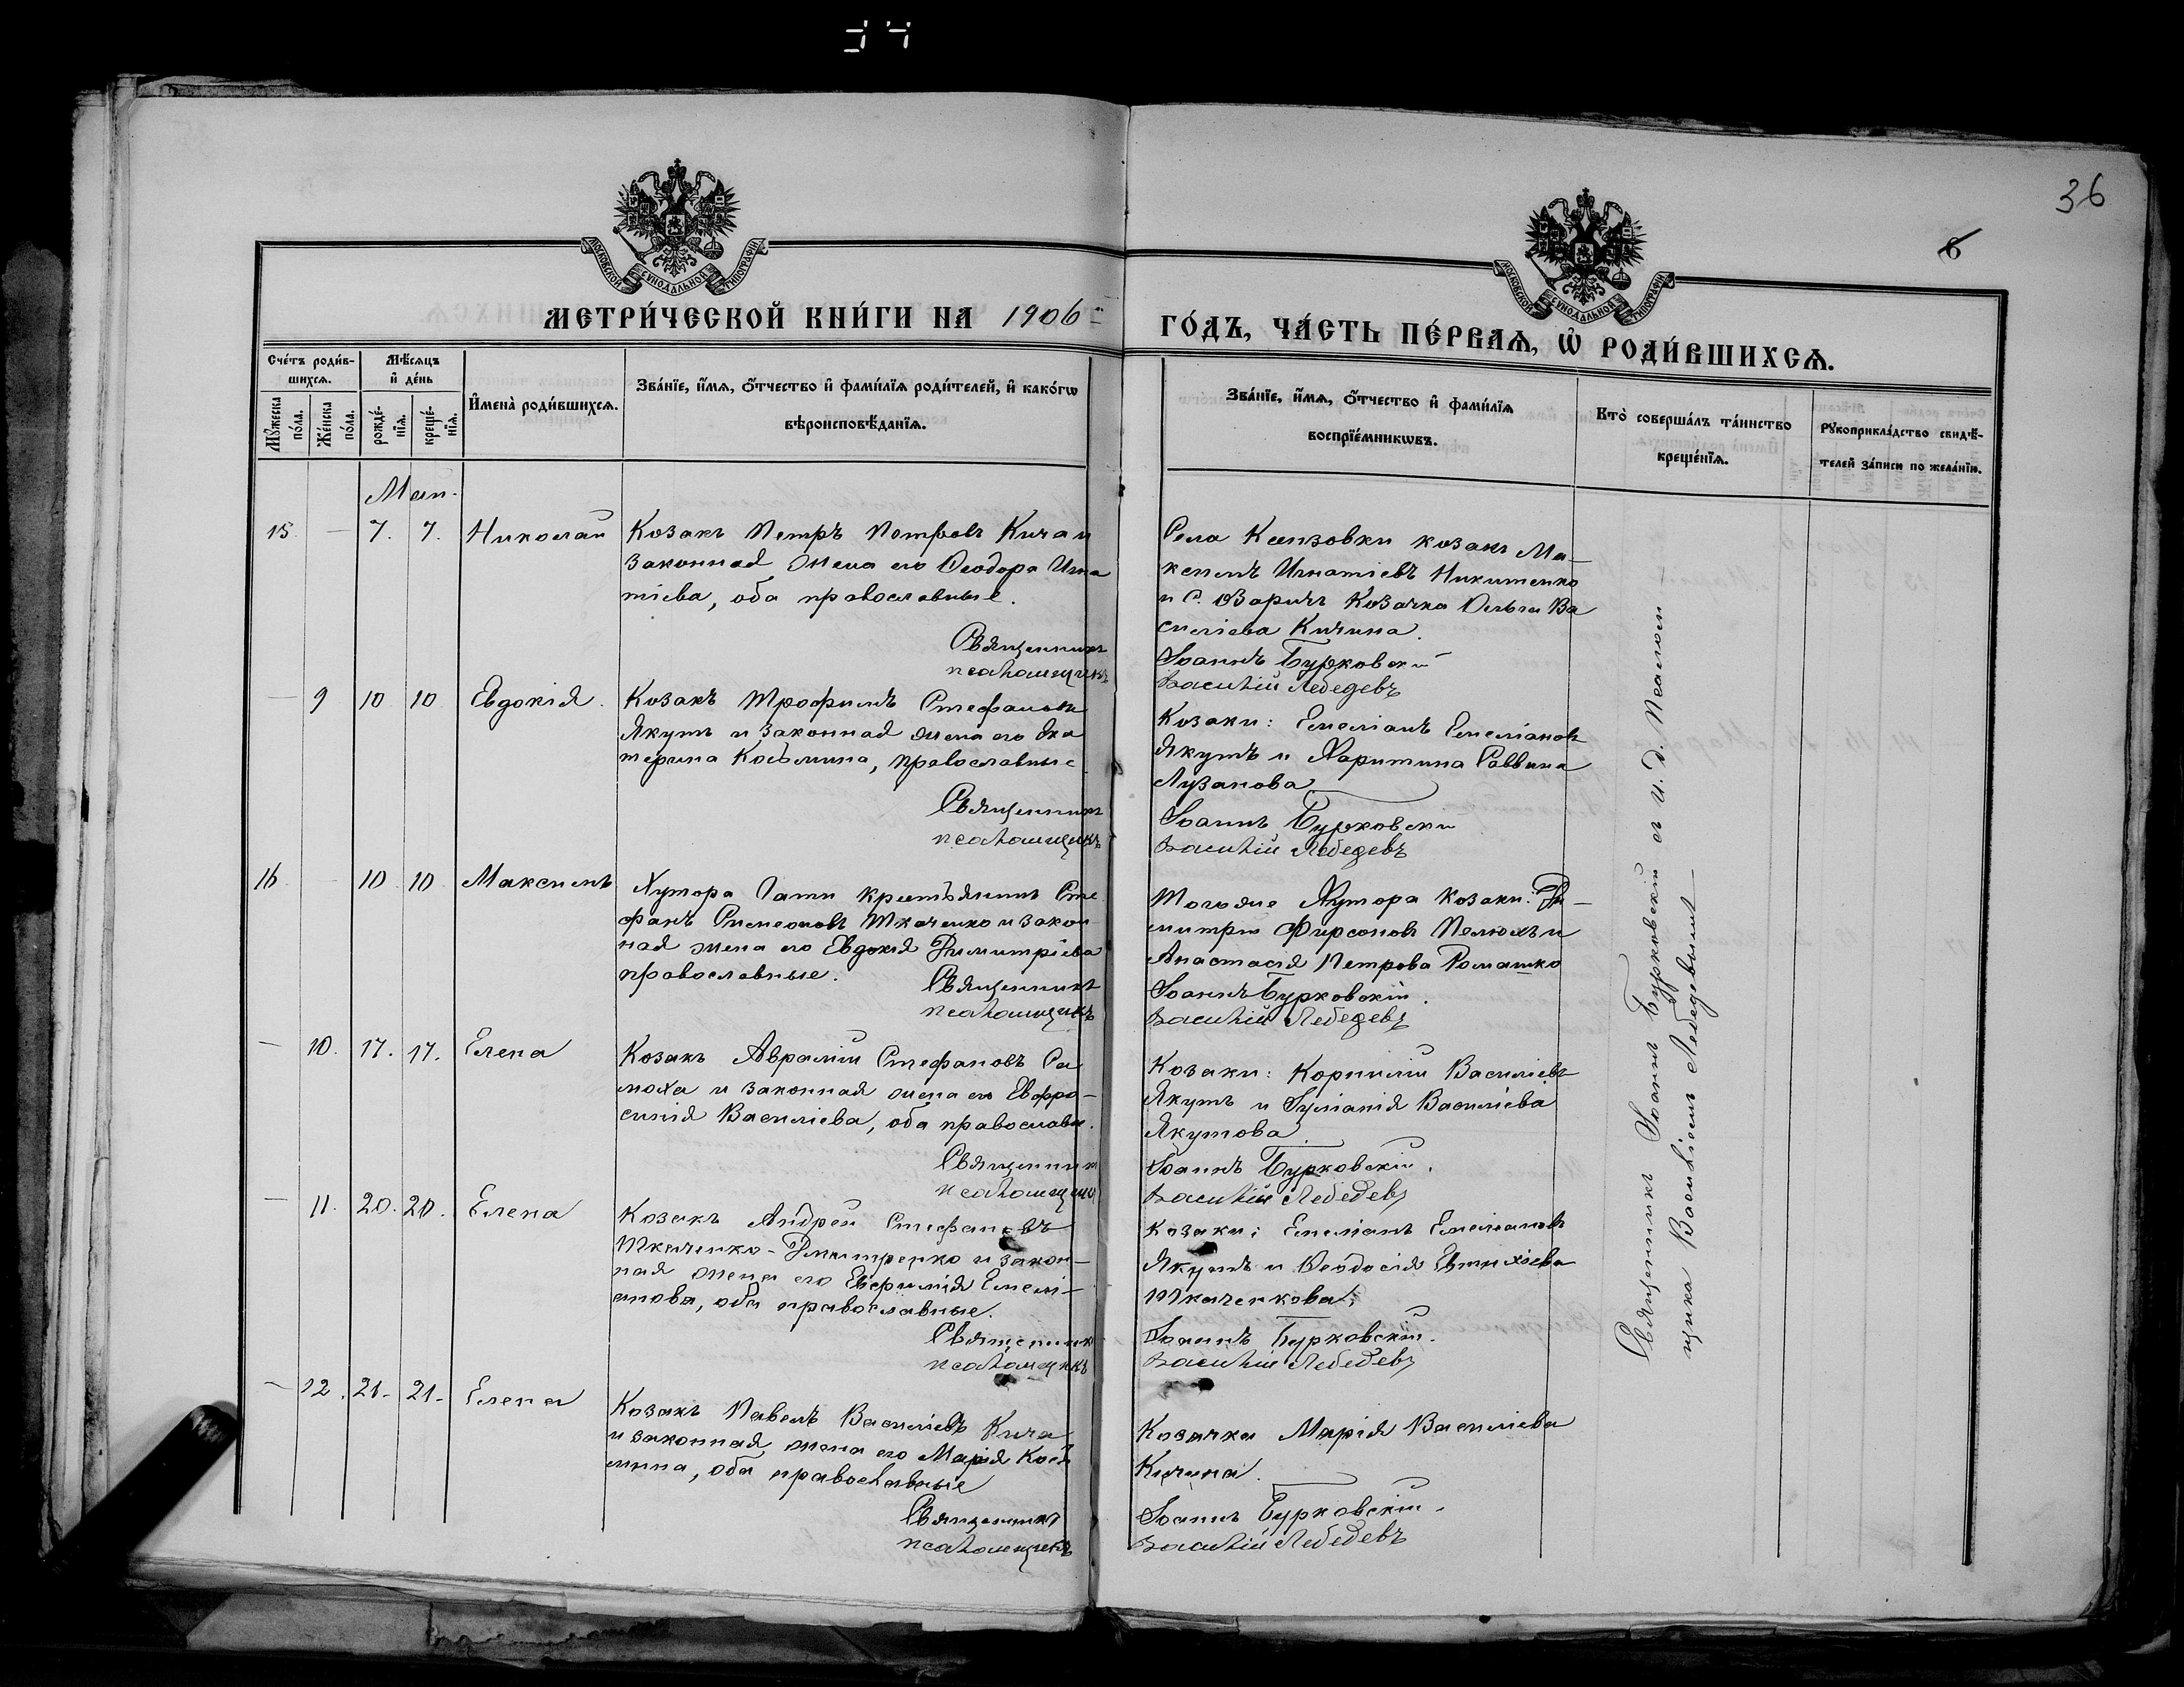 36
6
МОСКОВСКОЙ СѴНОДАЛЬНОЙ ТИПОГРАФІИ
МОСКОВСКОЙ СѴНОДАЛЬНОЙ ТИПОГРАФІИ
МЕТРИ́ЧЕСКОЙ КНИ́ГИ НА 1906
ГО́ДЪ, ЧА́СТЬ ПЕ́РВАѦ, Ѡ҆ РОДИ́ВШИХСѦ.
Сче́тъ роди́в-
шихсѧ.
Мꙋ́жеска по́ла.
Же́нска по́ла.
Мѣ́сѧцъ
и҆ де́нь
рожде́-нїѧ.
креще́-нїѧ.
И҆мена̀ роди́вшихсѧ.
Зва́нїе, и҆́мѧ, ѻ҆́тчество и҆ фами́лїѧ роди́телей, и҆ како́гѡ
вѣроисповѣ́данїѧ.
Зва́нїе, и҆́мѧ, ѻ҆́тчество и҆ фами́лїѧ
воспрїе́мникѡвъ.
Кто̀ соверша́лъ та́инство
креще́нїѧ.
Рꙋкоприкла́дство свидѣ́-
телей за́писи по жела́нїю.
Май.
15. — 7. 7. Николай
Козакъ Петръ Петровъ Кича и
законная жена его Ѳеодора Игна
тіева, оба православные.
Священникъ
псаломщикъ
Села козакъ Ма-
ксимъ Игнатіевъ Никитенко
и С. Козачка Ольга Ва
силіева Кичина.
Іоаннъ Бурковскій
Василій Лебедевъ
— 9 10 10 Евдокія.
Козакъ Трофимъ Стефановъ
Якутъ и законная жена его Ека
терина Косьмина, православные.
Священникъ
псаломщикъ
Козаки: Емеліанъ Емеліановъ
Якутъ и Харитина Саввина
Лузанова
Іоаннъ Бурковскій
Василій Лебедевъ
16. — 10. 10. Максимъ
Хутора крестьянинъ Сте
фанъ Симеоновъ Ткаченко и закон-
ная жена его Евдокія Димитріева
православные.
Священникъ
псаломщикъ
Тогоже Хутора козаки: Ди-
митрій Фирсоновъ и
Анастасія Петрова Ромашко
Іоаннъ Бурковскій.
Василій Лебедевъ
— 10. 17. 17. Елена
Козакъ Аврамій Стефановъ Са
моха и законная жена его Евфро-
синія Василіева, оба православн.
Священникъ
псаломщикъ
Козаки: Корнилій Василіевъ
Якутъ и Іуліанія Василіева
Якутова.
Іоаннъ Бурковскій.
Василій Лебедевъ
— 11. 20. 20. Елена
Козакъ Андрей Стефановъ
Ткаченко-Дмитренко и закон-
ная жена его Евфимія Емелі-
анова, оба православные.
Священникъ
псаломщикъ
Козаки: Емеліанъ Емеліановъ
Якутъ и Ѳеодосія Евтихіева
Ткаченкова.
Іоаннъ Бурковскій.
Василій Лебедевъ
— 12. 21. 21. Елена
Козакъ Павелъ Василіевъ Кича
и законная жена его Марія Козь
мина, оба православные
Священникъ
псаломщикъ
Козачка Марія Василіева
Кичина.
Іоаннъ Бурковскій.
Василій Лебедевъ
Священникъ Іоаннъ Бурковскій съ и. д. Псалом-
щика Василіемъ Лебедевымъ